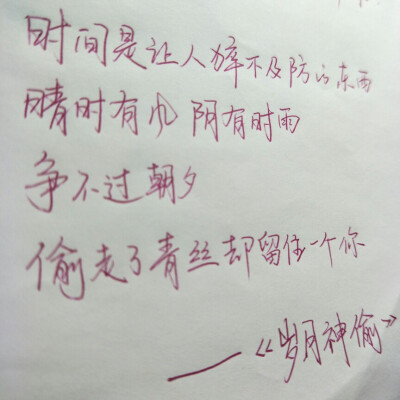 时间是让人猝不及防的东西
晴时有风阴有时雨
争不过朝夕
偷走了青丝却留住一个你
——《岁月神偷》